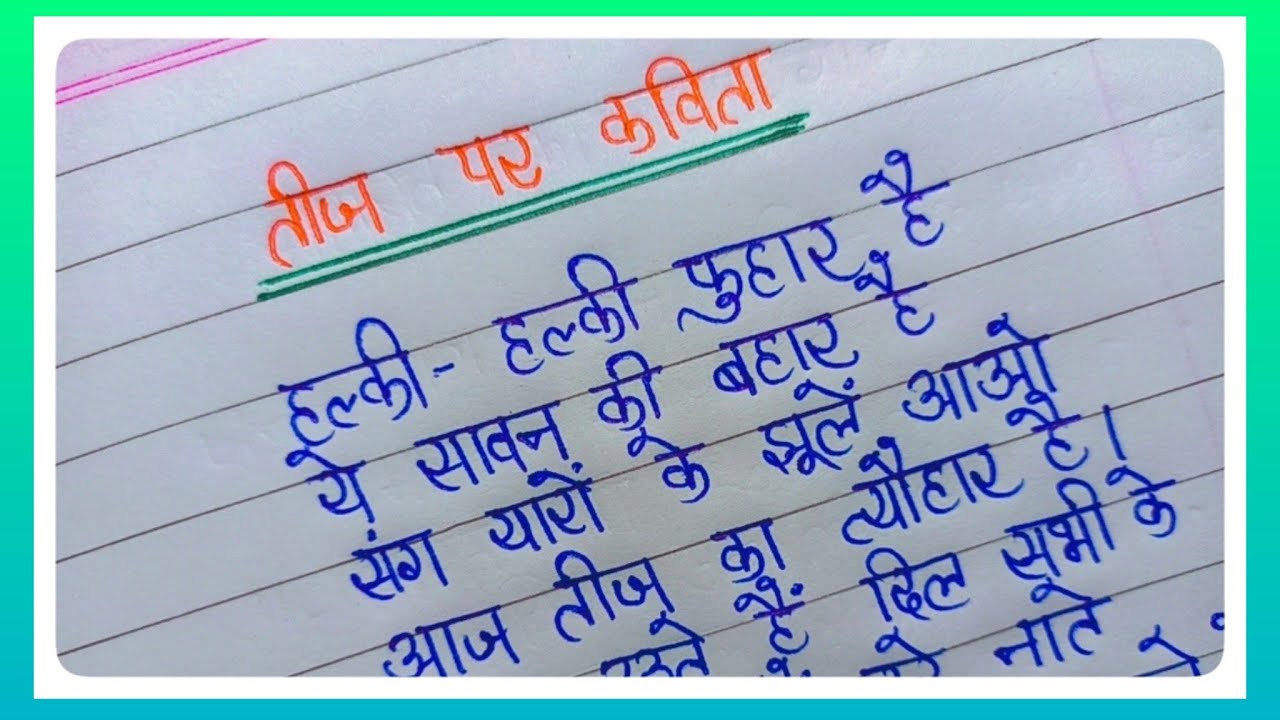 तीज पर कविता
हल्की- हल्की फुहार है
ये सावन की बहार है
संग यारों के झूलें आओ
आज तीज का त्यौहार है।
हैं दिल सभी के
नाते